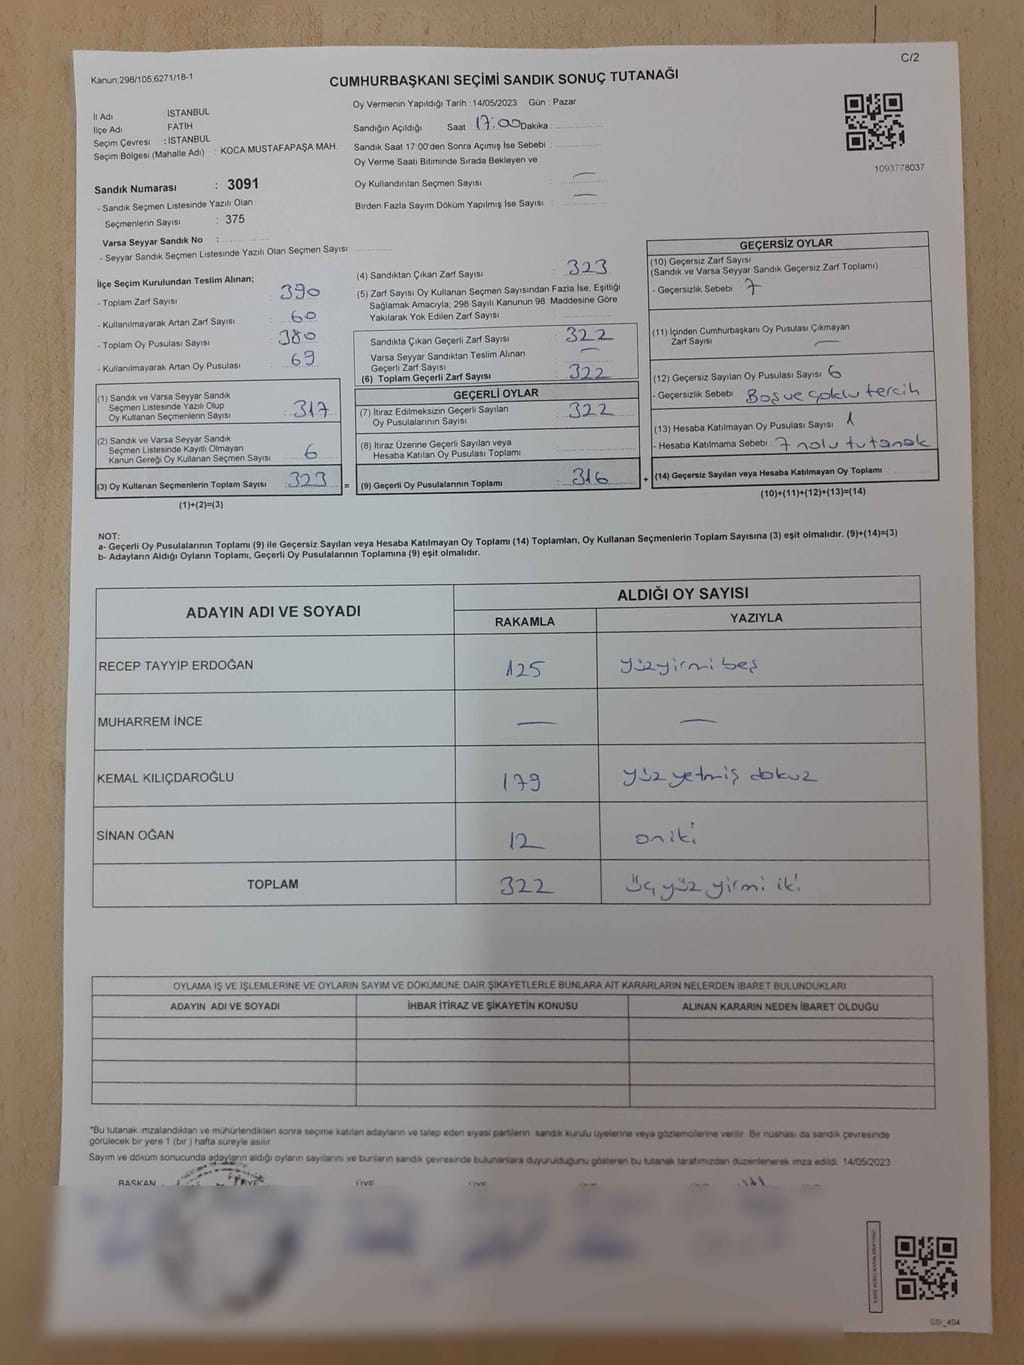 C/2
Kanun,298/105,6271/18-1
CUMHURBAŞKANI SEÇİMİ SANDIK SONUÇ TUTANAĞI
İl Adı : İSTANBUL
İlçe Adı : FATİH
Seçim Çevresi : İSTANBUL
Seçim Bölgesi (Mahalle Adı) : KOCA MUSTAFAPAŞA MAH.
Sandık Numarası : 3091
- Sandık Seçmen Listesinde Yazılı Olan
Seçmenlerin Sayısı : 375
Varsa Seyyar Sandık No :
- Seyyar Sandık Seçmen Listesinde Yazılı Olan Seçmen Sayısı:
Oy Vermenin Yapıldığı Tarih : 14/05/2023 Gün : Pazar
Sandığın Açıldığı Saat : 17:00 Dakika :
Sandık Saat 17:00'den Sonra Açımış İse Sebebi :
Oy Verme Saati Bitiminde Sırada Bekleyen ve
Oy Kullandırılan Seçmen Sayısı : —
Birden Fazla Sayım Döküm Yapılmış İse Sayısı : —
1093778037
İlçe Seçim Kurulundan Teslim Alınan;
- Toplam Zarf Sayısı : 390
- Kullanılmayarak Artan Zarf Sayısı : 60
- Toplam Oy Pusulası Sayısı : 380
- Kullanılmayarak Artan Oy Pusulası : 69
(1) Sandık ve Varsa Seyyar Sandık
Seçmen Listesinde Yazılı Olup
Oy Kullanan Seçmenlerin Sayısı : 317
(2) Sandık ve Varsa Seyyar Sandık
Seçmen Listesinde Kayıtlı Olmayan
Kanun Gereği Oy Kullanan Seçmen Sayısı : 6
(3) Oy Kullanan Seçmenlerin Toplam Sayısı : 323
(1)+(2)=(3)
=
(4) Sandıktan Çıkan Zarf Sayısı : 323
(5) Zarf Sayısı Oy Kullanan Seçmen Sayısından Fazla İse, Eşitliği
Sağlamak Amacıyla, 298 Sayılı Kanunun 98. Maddesine Göre
Yakılarak Yok Edilen Zarf Sayısı :
Sandıkta Çıkan Geçerli Zarf Sayısı : 322
Varsa Seyyar Sandıktan Teslim Alınan
Geçerli Zarf Sayısı : —
(6) Toplam Geçerli Zarf Sayısı : 322
GEÇERLİ OYLAR
(7) İtiraz Edilmeksizin Geçerli Sayılan
Oy Pusulalarının Sayısı : 322
(8) İtiraz Üzerine Geçerli Sayılan veya
Hesaba Katılan Oy Pusulası Toplamı :
(9) Geçerli Oy Pusulalarının Toplamı : 316
+
GEÇERSİZ OYLAR
(10) Geçersiz Zarf Sayısı
(Sandık ve Varsa Seyyar Sandık Geçersiz Zarf Toplamı)
- Geçersizlik Sebebi : 7
(11) İçinden Cumhurbaşkanı Oy Pusulası Çıkmayan
Zarf Sayısı : —
(12) Geçersiz Sayılan Oy Pusulası Sayısı : 6
- Geçersizlik Sebebi : Boş ve çoklu tercih
(13) Hesaba Katılmayan Oy Pusulası Sayısı : 1
- Hesaba Katılmama Sebebi : 7 nolu tutanak
(14) Geçersiz Sayılan veya Hesaba Katılmayan Oy Toplamı
(10)+(11)+(12)+(13)=(14)
NOT:
a- Geçerli Oy Pusulalarının Toplamı (9) ile Geçersiz Sayılan veya Hesaba Katılmayan Oy Toplamı (14) Toplamları, Oy Kullanan Seçmenlerin Toplam Sayısına (3) eşit olmalıdır. (9)+(14)=(3)
b- Adayların Aldığı Oyların Toplamı, Geçerli Oy Pusulalarının Toplamına (9) eşit olmalıdır.
ADAYIN ADI VE SOYADI
ALDIĞI OY SAYISI
RAKAMLA YAZIYLA
RECEP TAYYİP ERDOĞAN 125 yüzyirmi beş
MUHARREM İNCE — —
KEMAL KILIÇDAROĞLU 179 yüz yetmiş dokuz
SİNAN OĞAN 12 oniki
TOPLAM 322 üçyüz yirmi iki
OYLAMA İŞ VE İŞLEMLERİNE VE OYLARIN SAYIM VE DÖKÜMÜNE DAİR ŞİKAYETLERLE BUNLARA AİT KARARLARIN NELERDEN İBARET BULUNDUKLARI
ADAYIN ADI VE SOYADI İHBAR İTİRAZ VE ŞİKAYETİN KONUSU ALINAN KARARIN NEDEN İBARET OLDUĞU
*Bu tutanak imzalandıktan ve mühürlendikten sonra seçime katılan adayların ve talep eden siyasi partilerin sandık kurulu üyelerine veya gözlemcilerine verilir. Bir nüshası da sandık çevresinde
görülecek bir yere 1 (bir ) hafta süreyle asılır.
Sayım ve döküm sonucunda adayların aldığı oyların sayılarını ve bunların sandık çevresinde bulunanlara duyurulduğunu gösteren bu tutanak tarafımızdan düzenlenerek imza edildi. 14/05/2023
BAŞKAN ÜYE ÜYE ÜYE
SSI_404